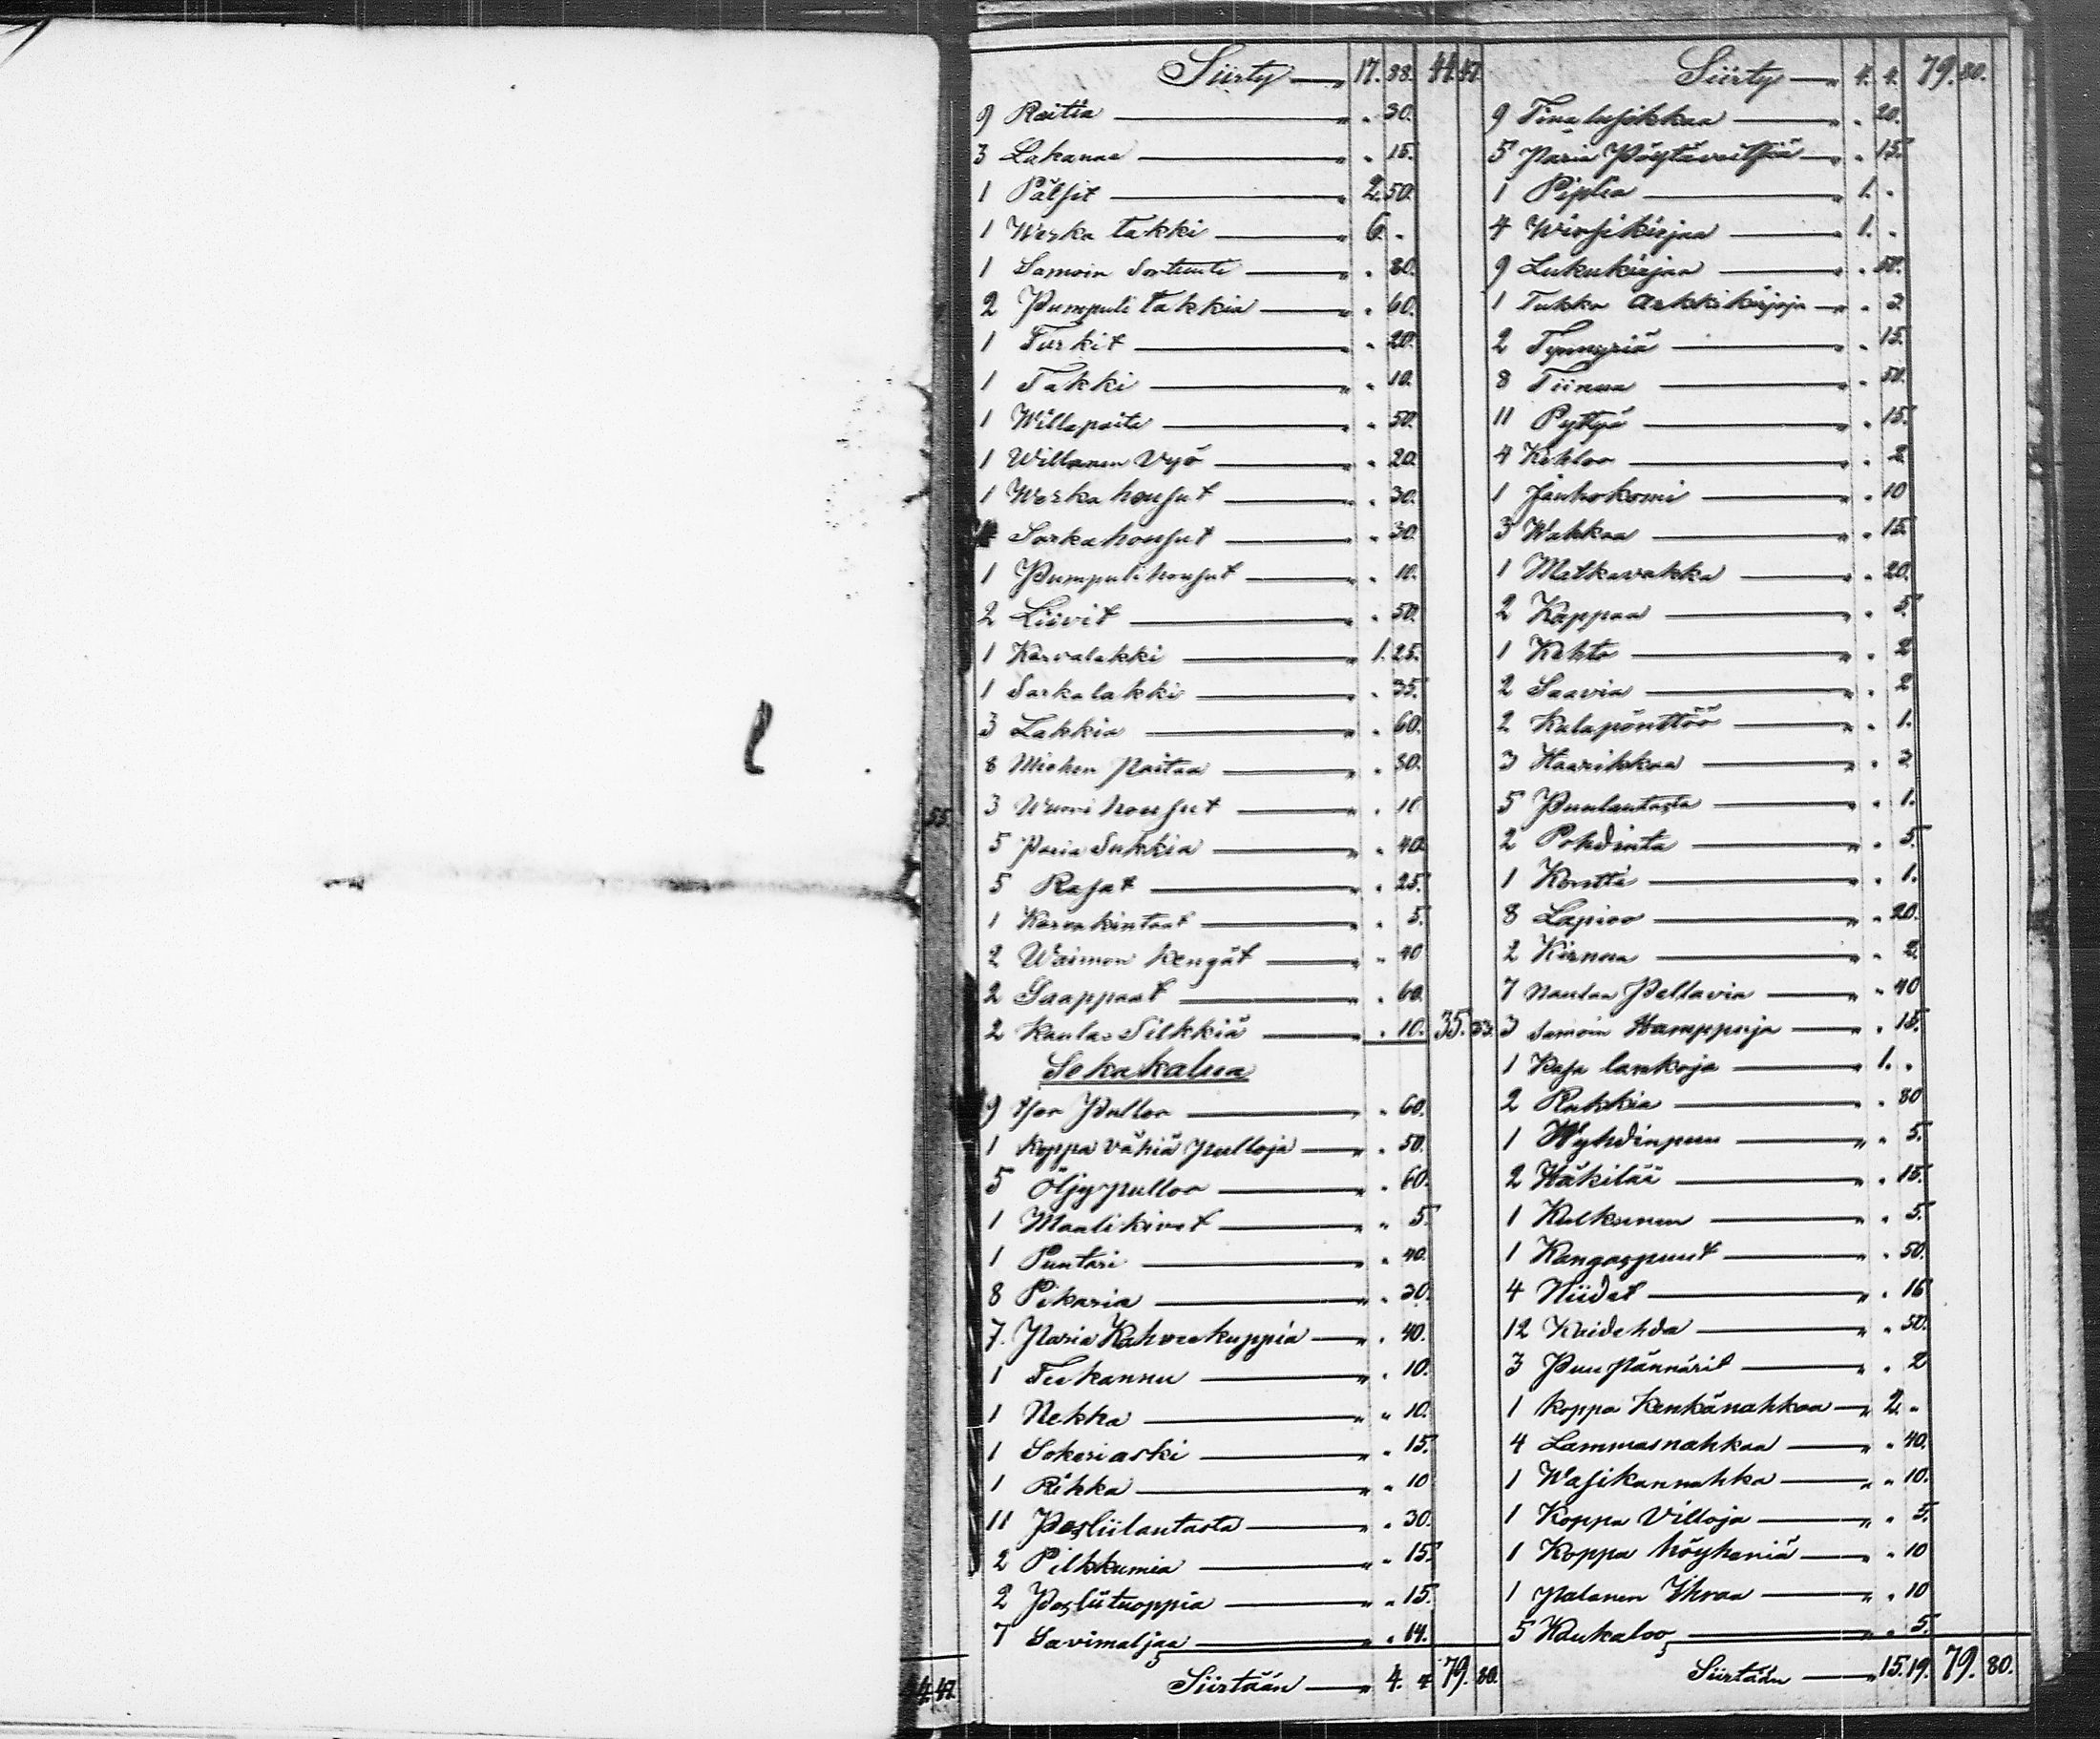 Siirty — „ 17. 88. 44. 47.
9 Raitia — „ „ 30.
3 Lakanaa — „ „ 15.
1 Pälsit — „ 2. 50.
1 Werka takki — „ 6. „
1 Samoin Sortuuti — „ „ 80.
2 Pumpuli takkia — „ „ 60.
1 Turkit — „ „ 20.
1 Takki — „ „ 10.
1 Willapaita — „ „ 50.
1 Willanen Vyö — „ „ 20.
1 Werka housut — „ „ 30.
Sarkahousut — „ „ 30.
1 Pumpulihousut — „ „ 10.
2 Liivit — „ „ 50.
1 Karvalakki — „ 1. 25.
1 Sarkalakki — „ „ 35.
3 Lakkia — „ „ 60.
8 Miehen Paitaa — „ „ 80.
3 housut — „ „ 10
5 Paria Sukkia — „ „ 40.
5 Rasat — „ „ 25.
1 Karvakintaat — „ „ 5.
2 Waimon Kengät — „ „ 40
2 Saappaat — „ „ 60.
2 Kaulas Silkkiä — „ „ 10. 35. 33.
Sekakalua
9 Pulloa — „ „ 60.
1 Koppa vähiä pulloja — „ „ 50.
5 Öljypulloa — „ „ 60.
1 Maalikivet — „ „ 5.
1 Puntari — „ „ 40.
8 Pikaria — „ „ 30.
7. Paria Kahveekuppia — „ „ 40.
1 Teekannu — „ „ 10.
1 Nekka — „ „ 10.
1 Sokeriaski — „ „ 15.
1 Rihka — „ „ 10
11 Posliilautasta — „ „ 30.
2 Pilkkumia — „ „ 15.
2 Posliituoppia — „ „ 15.
7 Savimaljaa — „ „ 14.
Siirtään — „ 4. 4 79. 80.
Siirty — „ 4. 4. 79. 80.
9 Tinalusikkaa — „ „ 20.
5 Paria Pöytäveitsiä — „ „ 15.
1 Piplia — „ 1. „
4 Wirsikirjaa — „ 1. „
9 Lukukirjaa — „ „ 50.
1 Tukko Arkkikirjoja — „ „ 3
2 Tynnyriä — „ „ 15.
8 Tiinua — „ „ 50.
11 Pyttyä — „ „ 15.
4 Kihloo — „ „ 2
1 Jauhokomi — „ „ 10
3 Wakkaa — „ „ 15.
1 Matkavakka — „ „ 20.
2 Kappaa — „ „ 5.
1 Kehto — „ „ 2
2 Saavia — „ „ 2
2 Kalapönttöö — „ „ 1.
3 Haarikkaa — „ „ 3
5 Puulautasta — „ „ 1.
2 Pohdinta — „ „ 5.
1 Kontti — „ „ 1.
8 Lapioo — „ „ 20.
2 Kirnua — „ „ 2.
7 Naulaa Pellavia — „ „ 40
3 samoin Hamppuja — „ „ 15.
1 Kasa lankoja — „ 1. „
2 Rukkia — „ „ 80
1 Wyhdinpuu — „ „ 5.
2 Häkilää — „ „ 15.
1 Kulkunen — „ „ 5.
1 Kangaspuut — „ „ 50.
4 Niidet — „ „ 16
12 Kaidehda — „ „ 50.
3 Puu Pännärit — „ „ 2
1 Koppa Kenkänahkaa — „ 2. „
4 Lammasnahkaa — „ „ 40.
1 Wasikannahka — „ „ 10.
1 Koppa Villoja — „ „ 5.
1 Koppa höyheniä — „ „ 10
1 Palanen Ihraa — „ „ 10
5 Kaukaloo — „ „ 5.
Siirtään — „ 15. 19. 79. 80.
55.
44. 47.